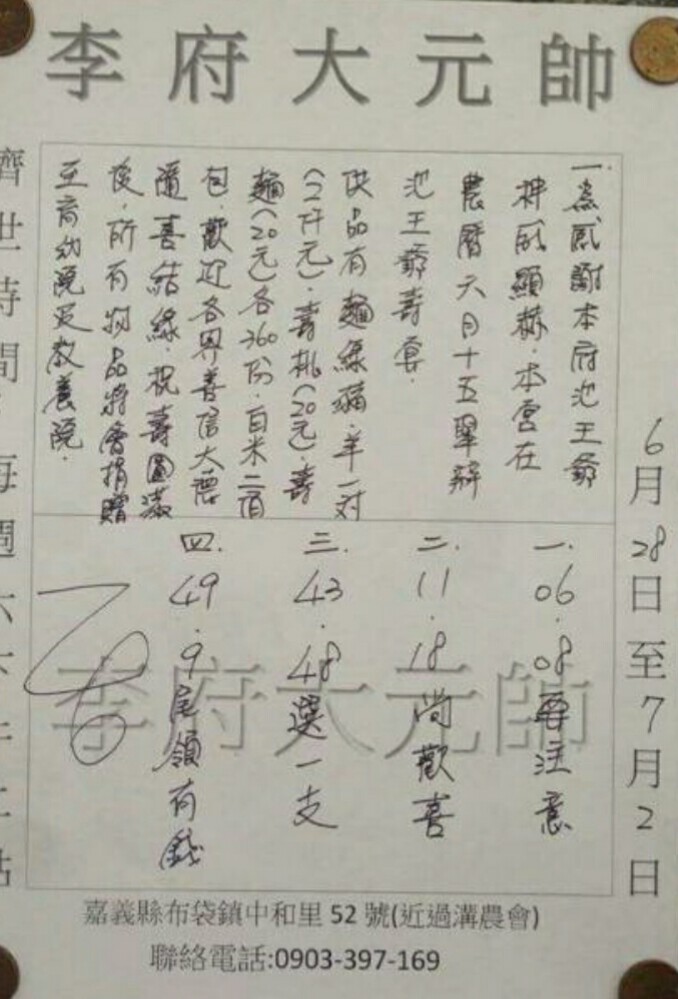 李府大元帥
6月28日至7月2日
一.為感謝本府池王爺
神威顯赫.本宮在
農曆六月十五舉辦
池王爺壽宴.
供品有麵線豬.羊一對
(2仟元).壽桃(20元).壽
麵(20元)各360份.白米二百
包.歡迎各界善信大德
隨喜結緣.祝壽圓滿
後.所有物品將會捐贈
至育幼院及教養院.
一.06.08再注意
二.11.18尚歡喜
三.43.48選一支
四.49.9尾領有錢
李府大元帥
濟世時間:每週六下午二點
嘉義縣布袋鎮中和里 52 號(近過溝農會)
聯絡電話:0903-397-169